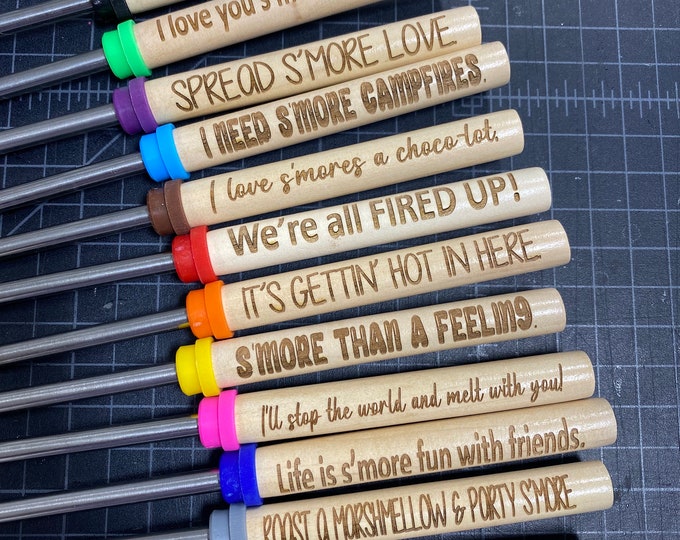 I love you's
SPREAD S'MORE LOVE
I NEED S'MORE CAMPFIRES.
I love s'mores a choco-lot.
We're all FIRED UP!
IT'S GETTIN' HOT IN HERE
S'MORE THAN A FEELING.
I'll stop the world and melt with you!
Life is s'more fun with friends.
ROAST A MARSHMELLOW & PARTY S'MORE